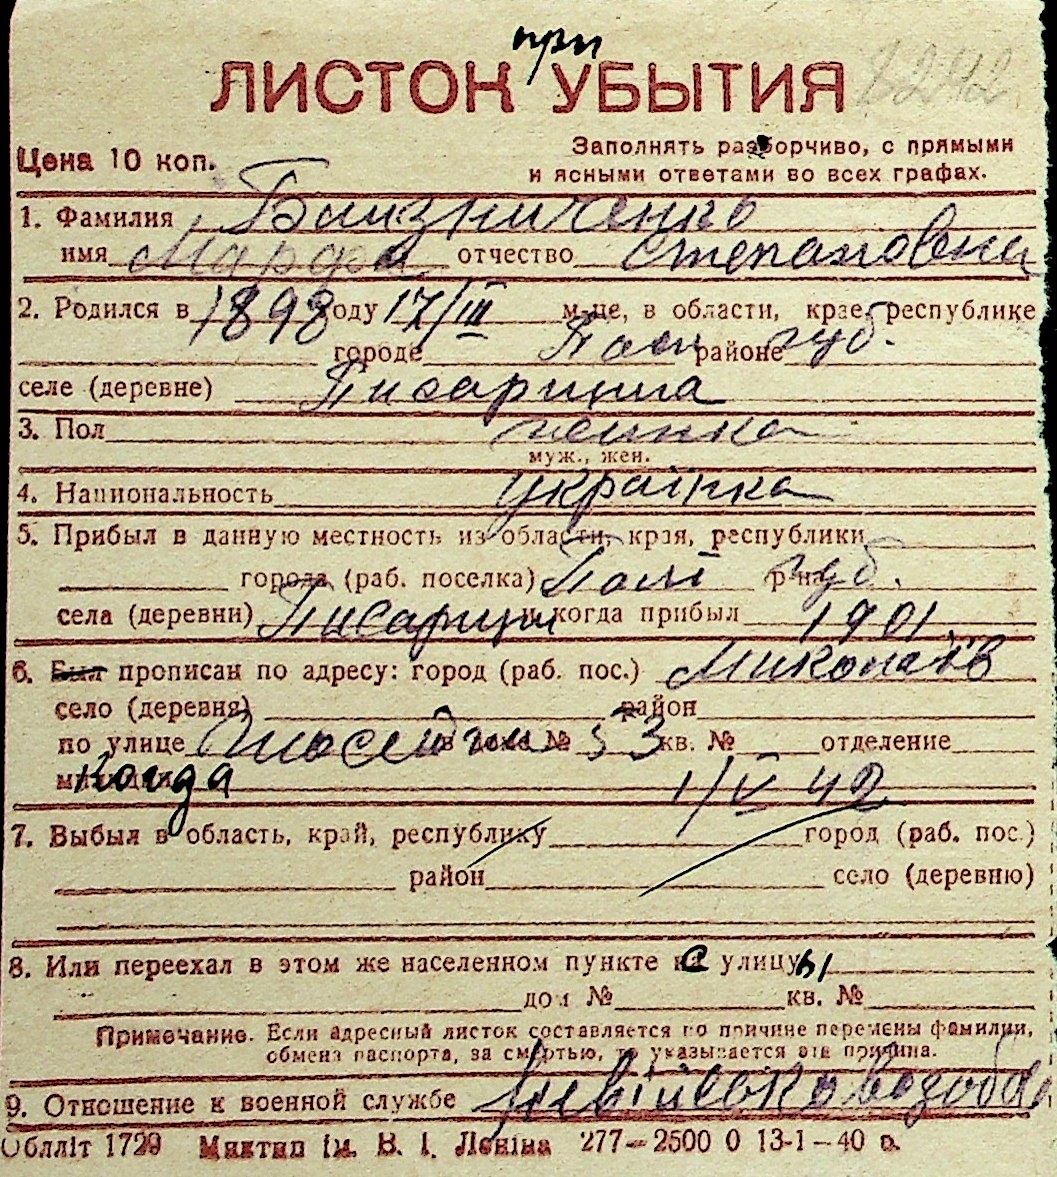 при
ЛИСТОК УБЫТИЯ
Цена 10 коп.
Заполнять разборчиво, с прямыми
и ясными ответами во всех графах.
1. Фамилия
имя Марфа отчество Степановна
2. Родился в 1898 году 17/III м-це, в области, крае, республике
городе Пол районе губ.
селе (деревне) Писарщина
3. Пол жінка
муж., жен.
4. Национальность українка
5. Прибыл в данную местность из области, края, республики
города (раб. поселка) Пол р-на губ.
села (деревни) Писарщи и когда прибыл 1901
6. Был прописан по адресу: город (раб. пос.) Миколаїв
село (деревня) район
по улице в доме № 53 кв. № отделение
милиции Когда 1/V 42
7. Выбыл в область, край, республику город (раб. пос.)
район село (деревню)
8. Или переехал в этом же населенном пункте с улицы
дом № кв. №
Примечание. Если адресный листок составляется по причине перемены фамилии,
обмена паспорта, за смертью, то указывается эта причина.
9. Отношение к военной службе Невійськовозобов
Облліт 1729 Миктип ім. В. І. Леніна 277—2500 0 13-1—40 р.